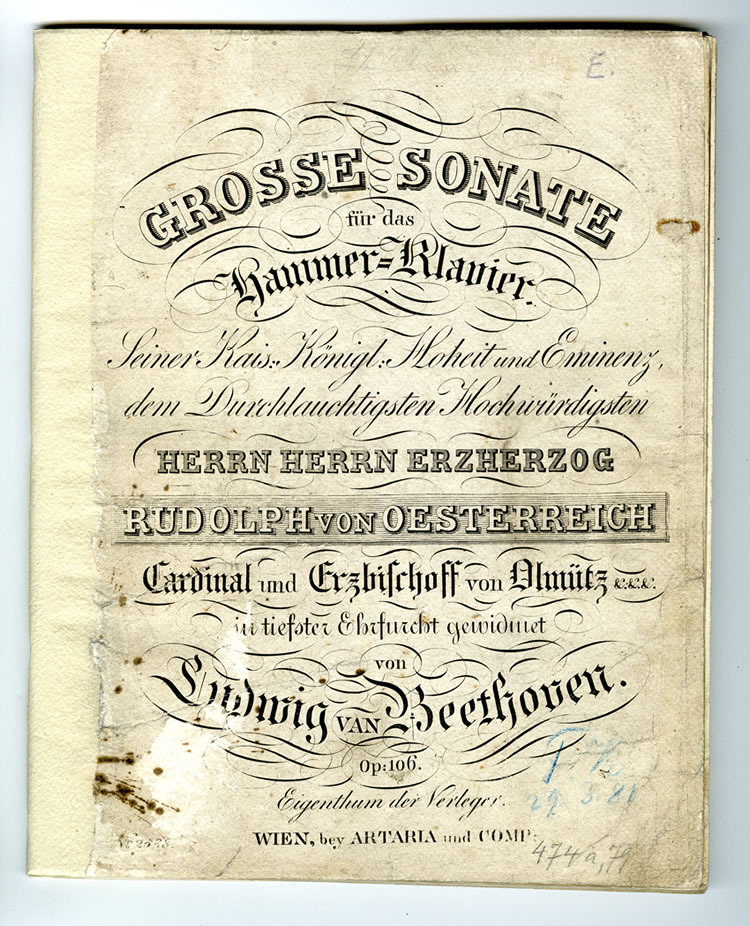 E.
GROSSE SONATE
für das
Hammer=Klavier.
Seiner Kais: Königl: Hoheit und Eminenz,
dem Durchlauchtigsten Hochwürdigsten
HERRN HERRN ERZHERZOG
RUDOLPH VON OESTERREICH
Cardinal und Erzbischoff von Olmütz &.&.&.
in tiefster Ehrfurcht gewidmet
von
Ludwig VAN Beethoven.
Op: 106.
Eigenthum der Verleger.
WIEN, bey ARTARIA und COMP:
474a,79